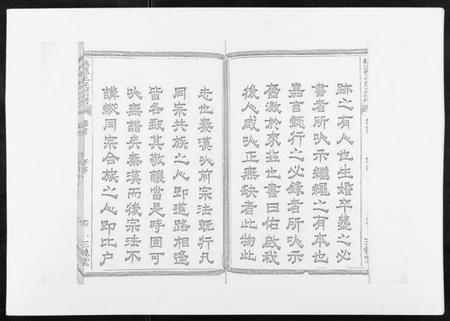 跡之有人也生婚卒塟之必
書者所以示繼繩之有本也
嘉言懿行之必錄者所以示
啓激於來玆也書曰佑啟我
後人咸以正無缺者此物此
志也秦漢以前宗法旣行凡
同宗共族之人即道路相逢
皆各致其敬讓當是時固可
以無譜矣秦漢而後宗法不
講縱同宗合族之人即比户